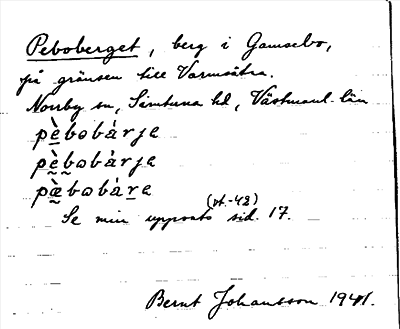 Peboberget, berg i Gamsebo,
på gränsen till Varmsätra.
Norrby sn, Simtuna hd, Västmanl. län
pè̱bobárja
pæ̰̀b̰obárja
pæ̰̀bobár̲a
(vt.-42)
Se min uppsats sid. 17.
Bernt Johansson 1941.